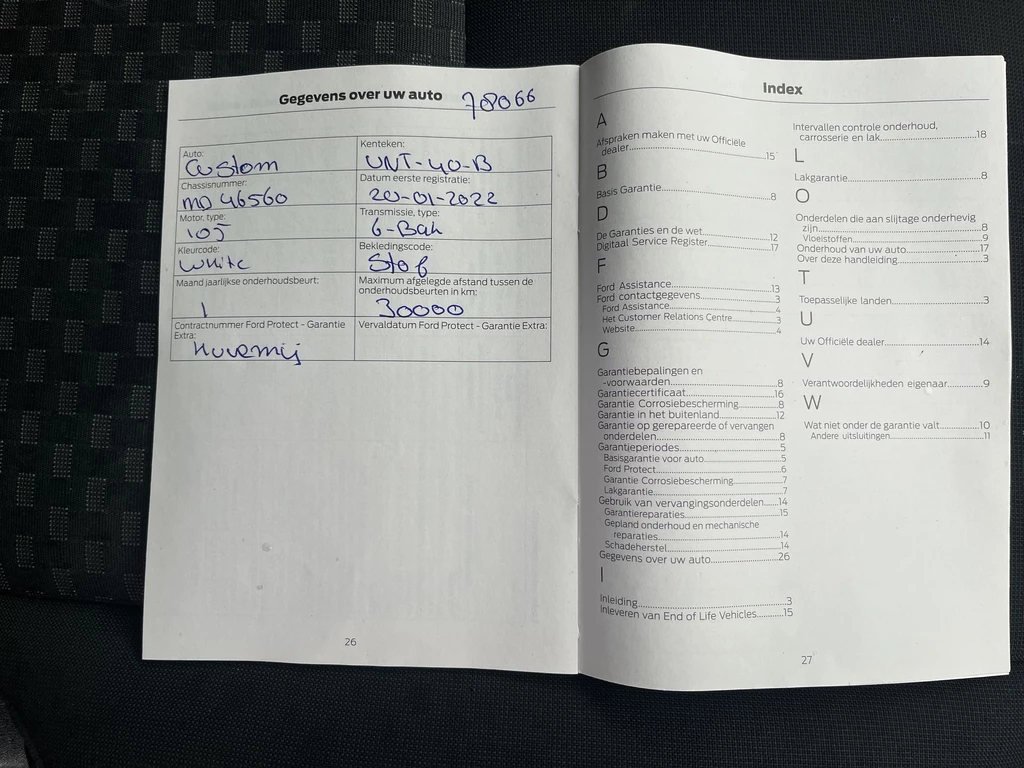 Gegevens over uw auto 78066
Auto:
Custom
Kenteken:
VNT-40-B
Chassisnummer:
MD 46560
Datum eerste registratie:
20-01-2022
Motor, type:
105
Transmissie, type:
6-Bak
Kleurcode:
White
Bekledingscode:
Stof
Maand jaarlijkse onderhoudsbeurt:
1
Maximum afgelegde afstand tussen de
onderhoudsbeurten in km:
30000
Contractnummer Ford Protect - Garantie
Extra:
Vervaldatum Ford Protect - Garantie Extra:
26
Index
A
Afspraken maken met uw Officiële
dealer...15
B
Basis Garantie...8
D
De Garanties en de wet...12
Digitaal Service Register...17
F
Ford Assistance...13
Ford contactgegevens...3
Ford Assistance...4
Het Customer Relations Centre...3
Website...4
G
Garantiebepalingen en
-voorwaarden...8
Garantiecertificaat...16
Garantie Corrosiebescherming...8
Garantie in het buitenland...12
Garantie op gerepareerde of vervangen
onderdelen...8
Garantieperiodes...5
Basisgarantie voor auto...5
Ford Protect...6
Garantie Corrosiebescherming...7
Lakgarantie...7
Gebruik van vervangingsonderdelen...14
Garantiereparaties...15
Gepland onderhoud en mechanische
reparaties...14
Schadeherstel...14
Gegevens over uw auto...26
I
Inleiding...3
Inleveren van End of Life Vehicles...15
Intervallen controle onderhoud,
carrosserie en lak...18
L
Lakgarantie...8
O
Onderdelen die aan slijtage onderhevig
zijn...8
Vloeistoffen...9
Onderhoud van uw auto...17
Over deze handleiding...3
T
Toepasselijke landen...3
U
Uw Officiële dealer...14
V
Verantwoordelijkheden eigenaar...9
W
Wat niet onder de garantie valt...10
Andere uitsluitingen...11
27